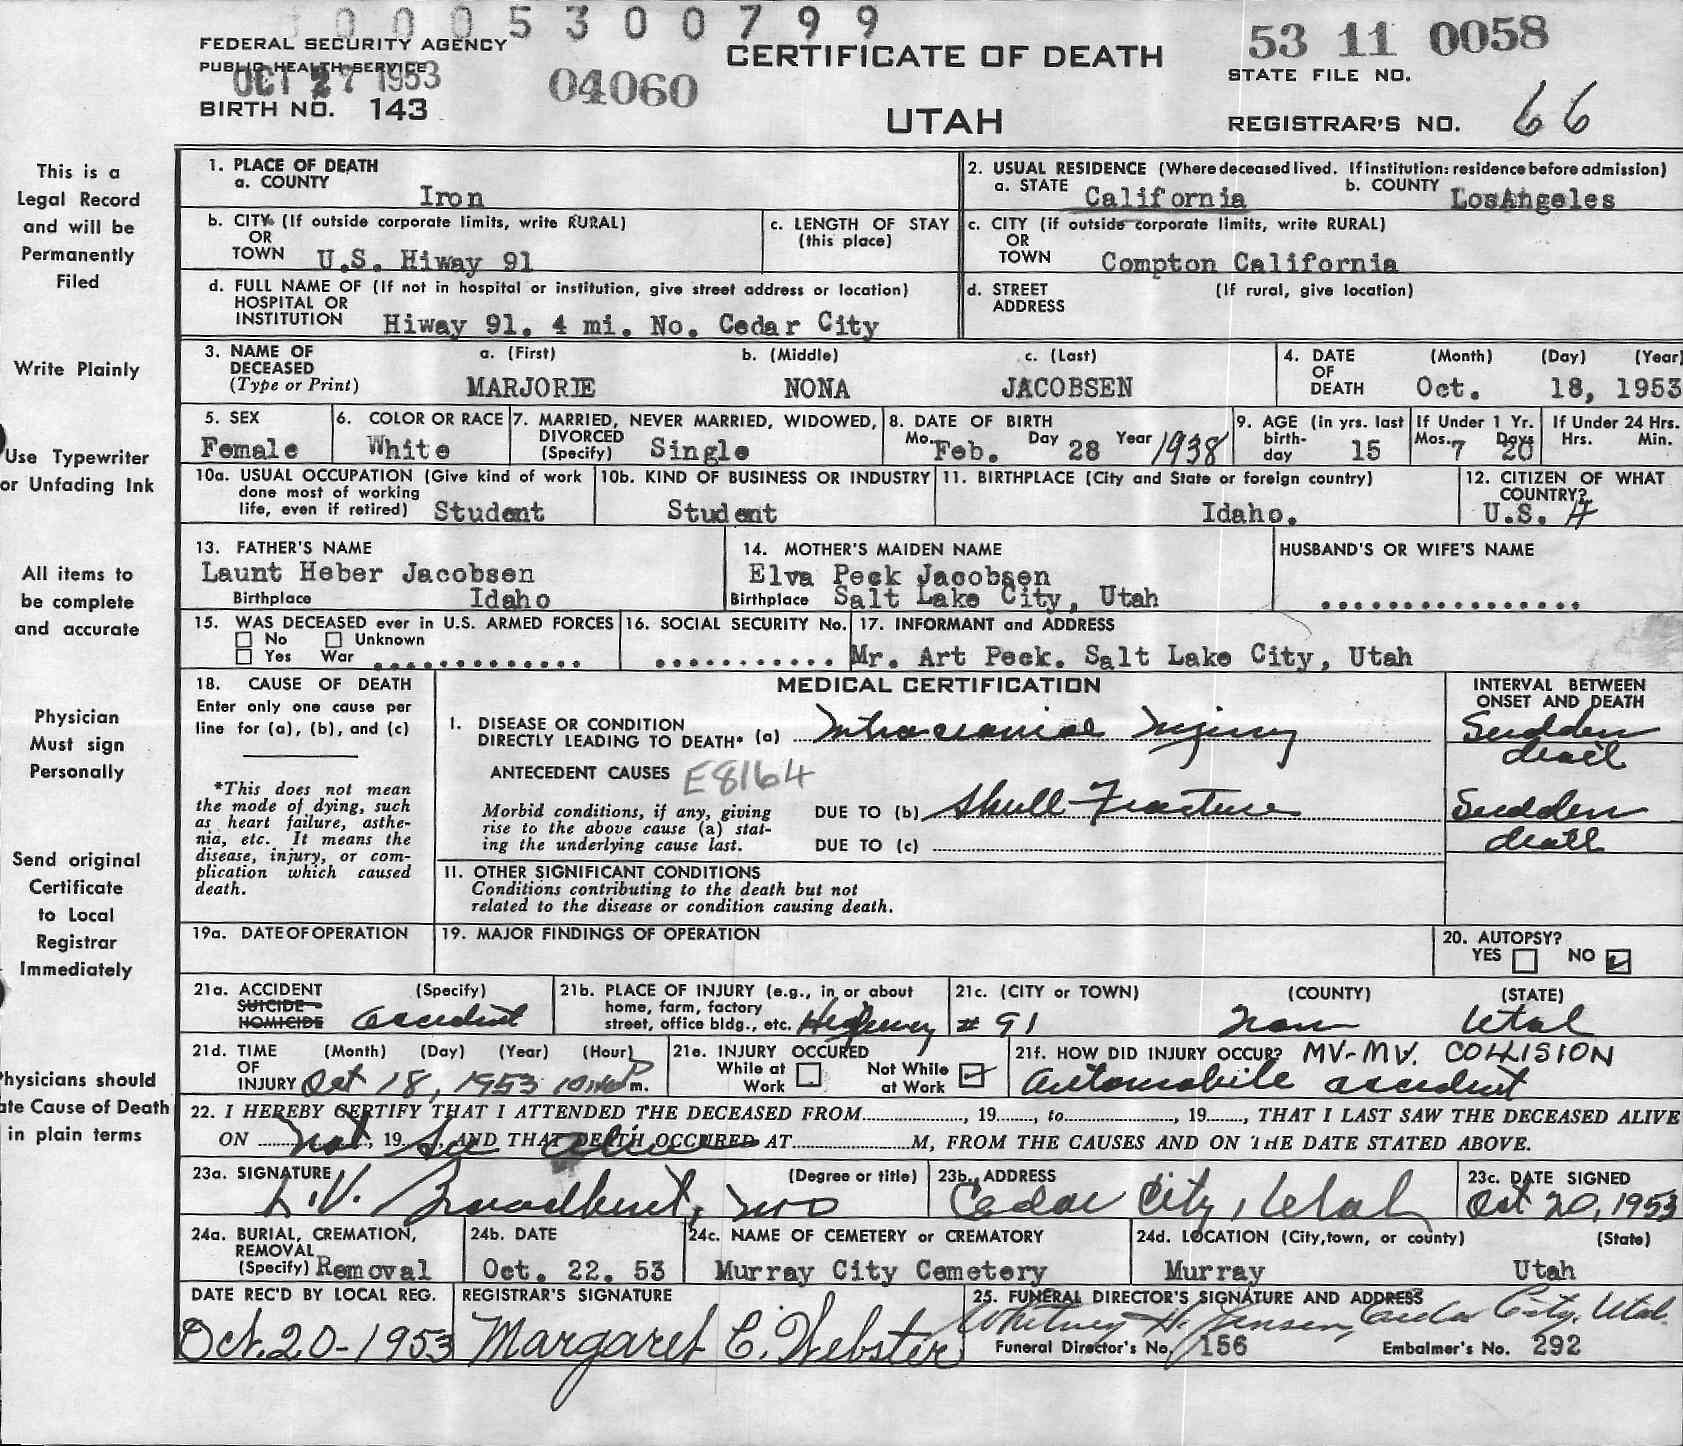 0005300799
FEDERAL SECURITY AGENCY
PUBLIC HEALTH SERVICE
OCT 27 1953
BIRTH NO. 143
04060
CERTIFICATE OF DEATH
UTAH
53 11 0058
STATE FILE NO.
REGISTRAR'S NO. 66
This is a
Legal Record
and will be
Permanently
Filed
Write Plainly
Use Typewriter
or Unfading Ink
All items to
be complete
and accurate
Physician
Must sign
Personally
Send original
Certificate
to Local
Registrar
Immediately
Physicians should
ate Cause of Death
in plain terms
1. PLACE OF DEATH
a. COUNTY Iron
2. USUAL RESIDENCE (Where deceased lived. If institution: residence before admission)
a. STATE California b. COUNTY LosAngeles
b. CITY (If outside corporate limits, write RURAL)
OR
TOWN U.S. Hiway 91
c. LENGTH OF STAY
(this place)
c. CITY (if outside corporate limits, write RURAL)
OR
TOWN Compton California
d. FULL NAME OF (If not in hospital or institution, give street address or location)
HOSPITAL OR
INSTITUTION Hiway 91. 4 mi. No. Cedar City
d. STREET (If rural, give location)
ADDRESS
3. NAME OF a. (First) b. (Middle) c. (Last)
DECEASED
(Type or Print) MARJORIE NONA JACOBSEN
4. DATE (Month) (Day) (Year)
OF
DEATH Oct. 18, 1953
5. SEX
Female
6. COLOR OR RACE
White
7. MARRIED, NEVER MARRIED, WIDOWED,
DIVORCED
(Specify) Single
8. DATE OF BIRTH
Mo. Feb. Day 28 Year 1938
9. AGE (in yrs. last
birth-
day 15
If Under 1 Yr.
Mos. 7 Days 20
If Under 24 Hrs.
Hrs. Min.
10a. USUAL OCCUPATION (Give kind of work
done most of working
life, even if retired) Student
10b. KIND OF BUSINESS OR INDUSTRY
Student
11. BIRTHPLACE (City and State or foreign country)
Idaho.
12. CITIZEN OF WHAT
COUNTRY?
U.S. A
13. FATHER'S NAME
Launt Heber Jacobsen
Birthplace Idaho
14. MOTHER'S MAIDEN NAME
Elva Peck Jacobsen
Birthplace Salt Lake City, Utah
HUSBAND'S OR WIFE'S NAME
15. WAS DECEASED ever in U.S. ARMED FORCES
No Unknown
Yes War
16. SOCIAL SECURITY No.
17. INFORMANT and ADDRESS
Mr. Art Peck. Salt Lake City, Utah
18. CAUSE OF DEATH
Enter only one cause per
line for (a), (b), and (c)
*This does not mean
the mode of dying, such
as heart failure, asthe-
nia, etc. It means the
disease, injury, or com-
plication which caused
death.
MEDICAL CERTIFICATION
INTERVAL BETWEEN
ONSET AND DEATH
I. DISEASE OR CONDITION
DIRECTLY LEADING TO DEATH* (a) Intracranial Injury
Sudden
death
ANTECEDENT CAUSES E8164
Morbid conditions, if any, giving
rise to the above cause (a) stat-
ing the underlying cause last.
DUE TO (b) Skull Fracture
Sudden
death
DUE TO (c)
II. OTHER SIGNIFICANT CONDITIONS
Conditions contributing to the death but not
related to the disease or condition causing death.
19a. DATE OF OPERATION
19. MAJOR FINDINGS OF OPERATION
20. AUTOPSY?
YES NO
21a. ACCIDENT (Specify)
SUICIDE
HOMICIDE accident
21b. PLACE OF INJURY (e.g., in or about
home, farm, factory
street, office bldg., etc. Highway
21c. (CITY or TOWN) (COUNTY) (STATE)
# 91 Iron Utah
21d. TIME (Month) (Day) (Year) (Hour)
OF
INJURY Oct 18, 1953 10:40 P m.
21e. INJURY OCCURED
While at
Work
Not While
at Work
21f. HOW DID INJURY OCCUR? MV-MV. COLLISION
automobile accident
22. I HEREBY CERTIFY THAT I ATTENDED THE DECEASED FROM, 19, to, 19, THAT I LAST SAW THE DECEASED ALIVE
ON not, 19 See AND THAT DEATH OCCURED alive AT M, FROM THE CAUSES AND ON THE DATE STATED ABOVE.
23a. SIGNATURE (Degree or title)
L.V. Broadbent, MD
23b. ADDRESS
Cedar City, Utah
23c. DATE SIGNED
Oct 20, 1953
24a. BURIAL, CREMATION,
REMOVAL
(Specify) Removal
24b. DATE
Oct. 22. 53
24c. NAME OF CEMETERY or CREMATORY
Murray City Cemetery
24d. LOCATION (City, town, or county) (State)
Murray Utah
DATE REC'D BY LOCAL REG.
Oct. 20-1953
REGISTRAR'S SIGNATURE
Margaret C. Webster
25. FUNERAL DIRECTOR'S SIGNATURE AND ADDRESS
Whitney H. Jensen, Cedar City, Utah.
Funeral Director's No. 156 Embalmer's No. 292